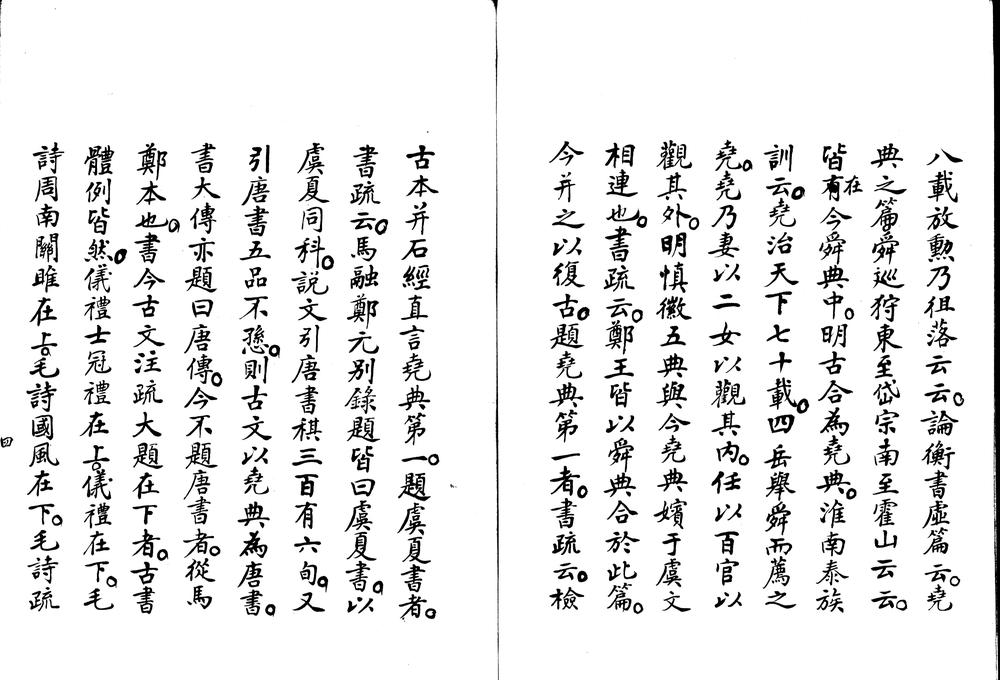 八載放勲乃徂落云云。論衡書虛篇云。堯
典之篇舜巡狩東至岱宗南至霍山云云。
皆有在今舜典中。明古合為堯典。淮南泰族
訓云。堯治天下七十載。四岳舉舜而薦之
堯。堯乃妻以二女以觀其内。任以百官以
觀其外。明慎徽五典與今堯典嬪于虞文
相連也。書疏云。鄭王皆以舜典合於此篇。
今并之以復古。題堯典第一者。書疏云。檢
古本并石經直言堯典第一。題虞夏書者。
書疏云。馬融鄭元别錄題皆曰虞夏書。以
虞夏同科。說文引唐書稘三百有六旬。又
引唐書五品不愻。則古文以堯典為唐書。
書大傳亦題曰唐傳。今不題唐書者。從馬
鄭本也。書今古文注疏大題在下者。古書
體例皆然。儀禮士冠禮在上。儀禮在下。毛
詩周南關雎在上。毛詩國風在下。毛詩疏
四